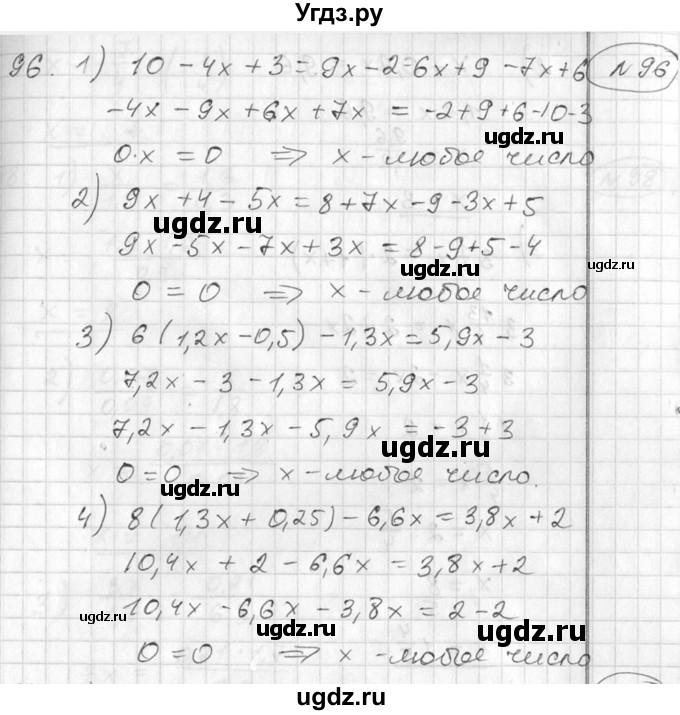 Угдз.ру
96. 1) 10 - 4x + 3 = 9x - 2 - 6x + 9 - 7x + 6 №96
-4x - 9x + 6x + 7x = -2 + 9 + 6 - 10 - 3
0·x = 0 ⇒ x - любое число
ugdz.ru
2) 9x + 4 - 5x = 8 + 7x - 9 - 3x + 5
ugdz.ru
9x - 5x - 7x + 3x = 8 - 9 + 5 - 4
ugdz.ru ugdz.ru
0 = 0 ⇒ x - любое число
3) 6(1,2x - 0,5) - 1,3x = 5,9x - 3
7,2x - 3 - 1,3x = 5,9x - 3
7,2x - 1,3x - 5,9x = -3 + 3
ugdz.ru
0 = 0 ⇒ x - любое число.
ugdz.ru
4) 8(1,3x + 0,25) - 6,6x = 3,8x + 2
10,4x + 2 - 6,6x = 3,8x + 2
10,4x - 6,6x - 3,8x = 2 - 2
ugdz.ru ugdz.ru
0 = 0 ⇒ x - любое число
ugdz.ru